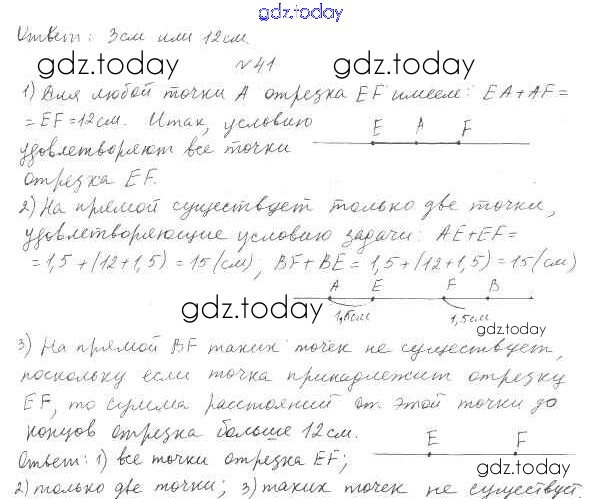 gdz.today
Ответ: 3 см или 12 см.
gdz.today
№ 41
gdz.today
1) Для любой точки A отрезка EF имеем: EA + AF =
= EF = 12 см. Итак, условию
E A F
удовлетворяют все точки
отрезка EF.
2) На прямой существует только две точки,
удовлетворяющие условию задачи: AE + EF =
= 1,5 + (12 + 1,5) = 15 (см); BF + BE = 1,5 + (12 + 1,5) = 15 (см)
A E F B
gdz.today
1,5см 1,5см
gdz.today
3) На прямой BF таких точек не существует,
поскольку если точка принадлежит отрезку
EF, то сумма расстояний от этой точки до
концов отрезка больше 12 см.
E F
Ответ: 1) все точки отрезка EF;
gdz.today
2) только две точки; 3) таких точек не существует.